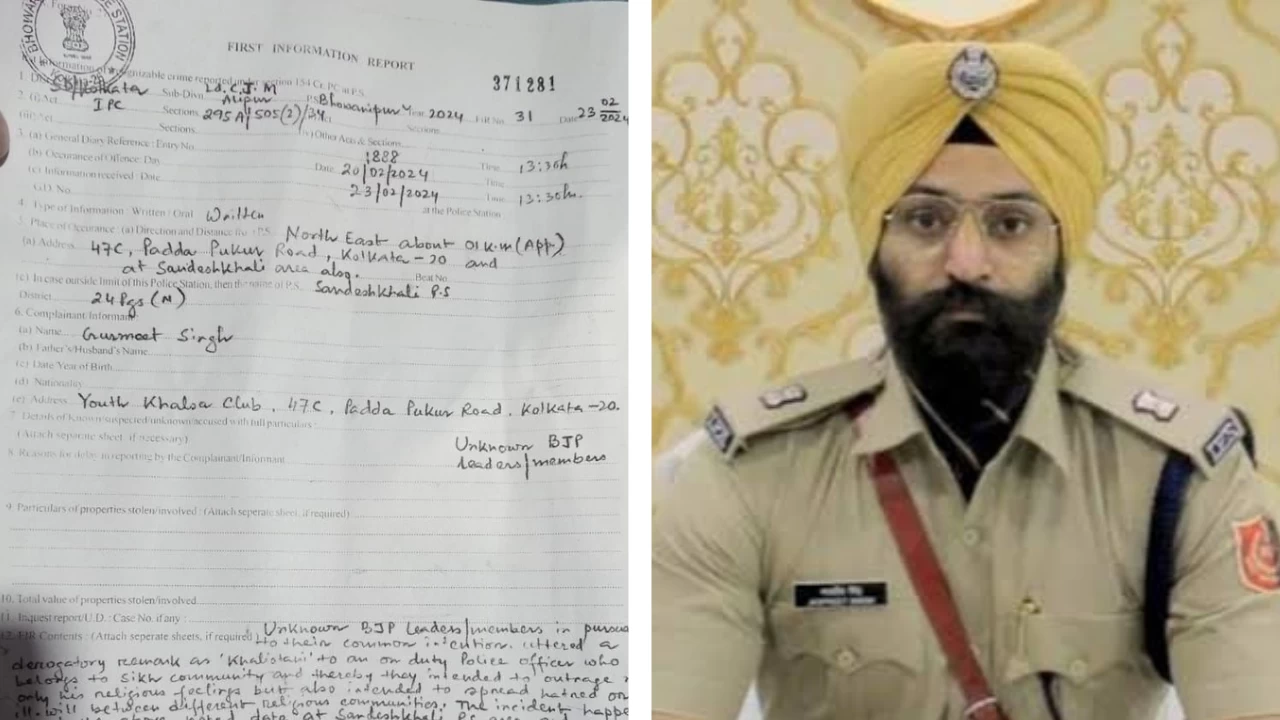 BHOWANIPUR POLICE STATION
FIRST INFORMATION REPORT
371281
cognizable crime reported under section 154 Cr. P.C. at P.S.
1. Dist. SD/Kolkata Sub-Divn. Ld. C.J.M Alipur P.S. Bhowanipur Year 2024 FIR No. 31 Date 23 02 2024
2. (i) Act IPC Sections 295A/505(2)/34
Sections (iv) Other Acts & Sections Sections
3. (a) General Diary Reference : Entry No. 1888 Time 13:30h
(b) Occurance of Offence : Day Date 20/02/2024 Time
(c) Information received : Date 23/02/2024 Time 13:30hr.
G.D. No. at the Police Station
4. Type of Information : Written / Oral Written
5. Place of Occurance : (a) Direction and Distance from P.S. North East about 01 K.m (App.)
(a) Address 47C, Padda Pukur Road, Kolkata-20 and
at Sandeshkhali area also. Beat No.
(c) In case outside limit of this Police Station, then the name of P.S. Sandeshkhali P.S
District 24 Pgs (N)
6. Complainant/Informant
(a) Name Gurmeet Singh
(b) Father's/Husband's Name
(c) Date/Year of Birth
(d) Nationality
(e) Address Youth Khalsa Club, 47C, Padda Pukur Road, Kolkata-20.
7. Details of Known/suspected/unknown/accused with full particulars :
(Attach separate sheet, if necessary) Unknown BJP
8. Reasons for delay in reporting by the Complainant/Informant leaders/members
9. Particulars of properties stolen/involved : (Attach seperate sheet, if required)
10. Total value of properties stolen/involved
11. Inquest report/U.D. : Case No. if any :
12. FIR Contents : (Attach seperate sheets, if required) Unknown BJP Leaders/members in
to their common intention uttered a
derogatory remark as 'Khalistani' to an on duty Police officer who
belongs to Sikh community and thereby they intended to outrage
only his religious feelings but also intended to spread hatred
ill will between different religious communities. The incident
date at Sandeshkhali P.S area and